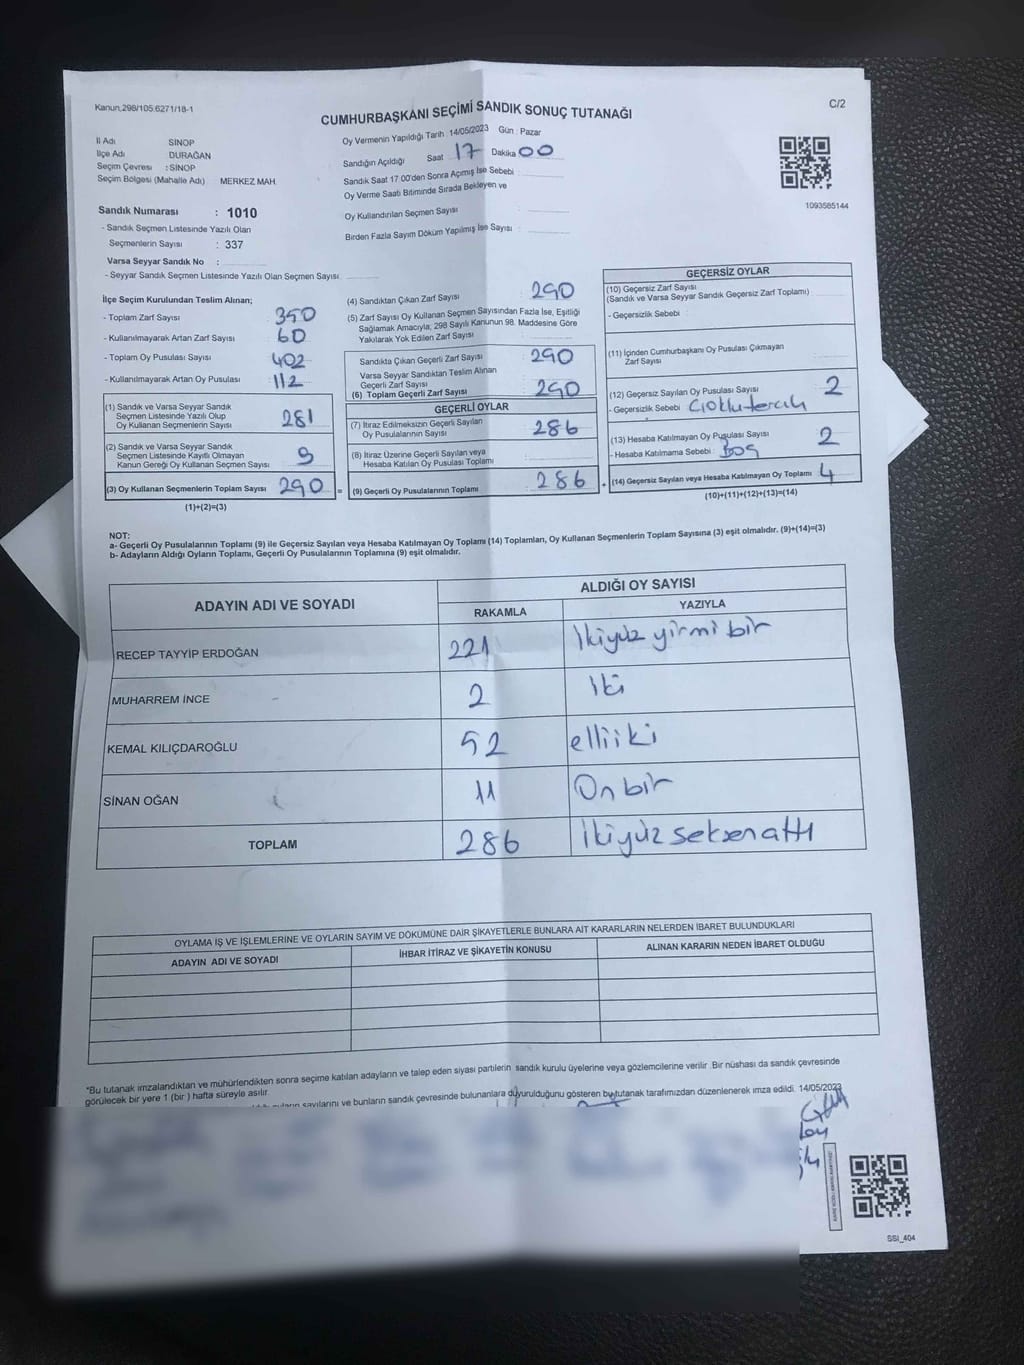 Kanun,298/105.6271/18-1
C/2
CUMHURBAŞKANI SEÇİMİ SANDIK SONUÇ TUTANAĞI
İl Adı SİNOP
İlçe Adı DURAĞAN
Seçim Çevresi : SİNOP
Seçim Bölgesi (Mahalle Adı) MERKEZ MAH.
Oy Vermenin Yapıldığı Tarih : 14/05/2023 Gün : Pazar
Sandığın Açıldığı Saat 17 Dakika 00
Sandık Saat 17.00'den Sonra Açılmış İse Sebebi :
Oy Verme Saati Bitiminde Sırada Bekleyen ve
Oy Kullandırılan Seçmen Sayısı
Birden Fazla Sayım Döküm Yapılmış İse Sayısı :
1093585144
Sandık Numarası : 1010
- Sandık Seçmen Listesinde Yazılı Olan
Seçmenlerin Sayısı : 337
Varsa Seyyar Sandık No :
- Seyyar Sandık Seçmen Listesinde Yazılı Olan Seçmen Sayısı
İlçe Seçim Kurulundan Teslim Alınan;
- Toplam Zarf Sayısı 350
- Kullanılmayarak Artan Zarf Sayısı 60
- Toplam Oy Pusulası Sayısı 402
- Kullanılmayarak Artan Oy Pusulası 112
(1) Sandık ve Varsa Seyyar Sandık
Seçmen Listesinde Yazılı Olup
Oy Kullanan Seçmenlerin Sayısı 281
(2) Sandık ve Varsa Seyyar Sandık
Seçmen Listesinde Kayıtlı Olmayan
Kanun Gereği Oy Kullanan Seçmen Sayısı 9
(3) Oy Kullanan Seçmenlerin Toplam Sayısı 290 =
(1)+(2)=(3)
(4) Sandıktan Çıkan Zarf Sayısı : 290
(5) Zarf Sayısı Oy Kullanan Seçmen Sayısından Fazla İse, Eşitliği
Sağlamak Amacıyla; 298 Sayılı Kanunun 98. Maddesine Göre
Yakılarak Yok Edilen Zarf Sayısı
Sandıkta Çıkan Geçerli Zarf Sayısı : 290
Varsa Seyyar Sandıktan Teslim Alınan
Geçerli Zarf Sayısı
(6) Toplam Geçerli Zarf Sayısı : 290
GEÇERLİ OYLAR
(7) İtiraz Edilmeksizin Geçerli Sayılan
Oy Pusulalarının Sayısı : 286
(8) İtiraz Üzerine Geçerli Sayılan veya
Hesaba Katılan Oy Pusulası Toplamı
(9) Geçerli Oy Pusulalarının Toplamı : 286 +
GEÇERSİZ OYLAR
(10) Geçersiz Zarf Sayısı
(Sandık ve Varsa Seyyar Sandık Geçersiz Zarf Toplamı)
- Geçersizlik Sebebi :
(11) İçinden Cumhurbaşkanı Oy Pusulası Çıkmayan
Zarf Sayısı
(12) Geçersiz Sayılan Oy Pusulası Sayısı 2
- Geçersizlik Sebebi
(13) Hesaba Katılmayan Oy Pusulası Sayısı 2
- Hesaba Katılmama Sebebi : Boş
(14) Geçersiz Sayılan veya Hesaba Katılmayan Oy Toplamı 4
(10)+(11)+(12)+(13)=(14)
NOT:
a- Geçerli Oy Pusulalarının Toplamı (9) ile Geçersiz Sayılan veya Hesaba Katılmayan Oy Toplamı (14) Toplamları, Oy Kullanan Seçmenlerin Toplam Sayısına (3) eşit olmalıdır. (9)+(14)=(3)
b- Adayların Aldığı Oyların Toplamı, Geçerli Oy Pusulalarının Toplamına (9) eşit olmalıdır.
ADAYIN ADI VE SOYADI
ALDIĞI OY SAYISI
RAKAMLA YAZIYLA
RECEP TAYYİP ERDOĞAN 221 İkiyüz yirmi bir
MUHARREM İNCE 2 İki
KEMAL KILIÇDAROĞLU 52 elliiki
SİNAN OĞAN 11 On bir
TOPLAM 286 İkiyüz seksen altı
OYLAMA İŞ VE İŞLEMLERİNE VE OYLARIN SAYIM VE DÖKÜMÜNE DAİR ŞİKAYETLERLE BUNLARA AİT KARARLARIN NELERDEN İBARET BULUNDUKLARI
ADAYIN ADI VE SOYADI İHBAR İTİRAZ VE ŞİKAYETİN KONUSU ALINAN KARARIN NEDEN İBARET OLDUĞU
*Bu tutanak imzalandıktan ve mühürlendikten sonra seçime katılan adayların ve talep eden siyasi partilerin sandık kurulu üyelerine veya gözlemcilerine verilir. Bir nüshası da sandık çevresinde
görülecek bir yere 1 (bir ) hafta süreyle asılır.
sayılarını ve bunların sandık çevresinde bulunanlara duyurulduğunu gösteren bu tutanak tarafımızdan düzenlenerek imza edildi. 14/05/2023
SSI_404